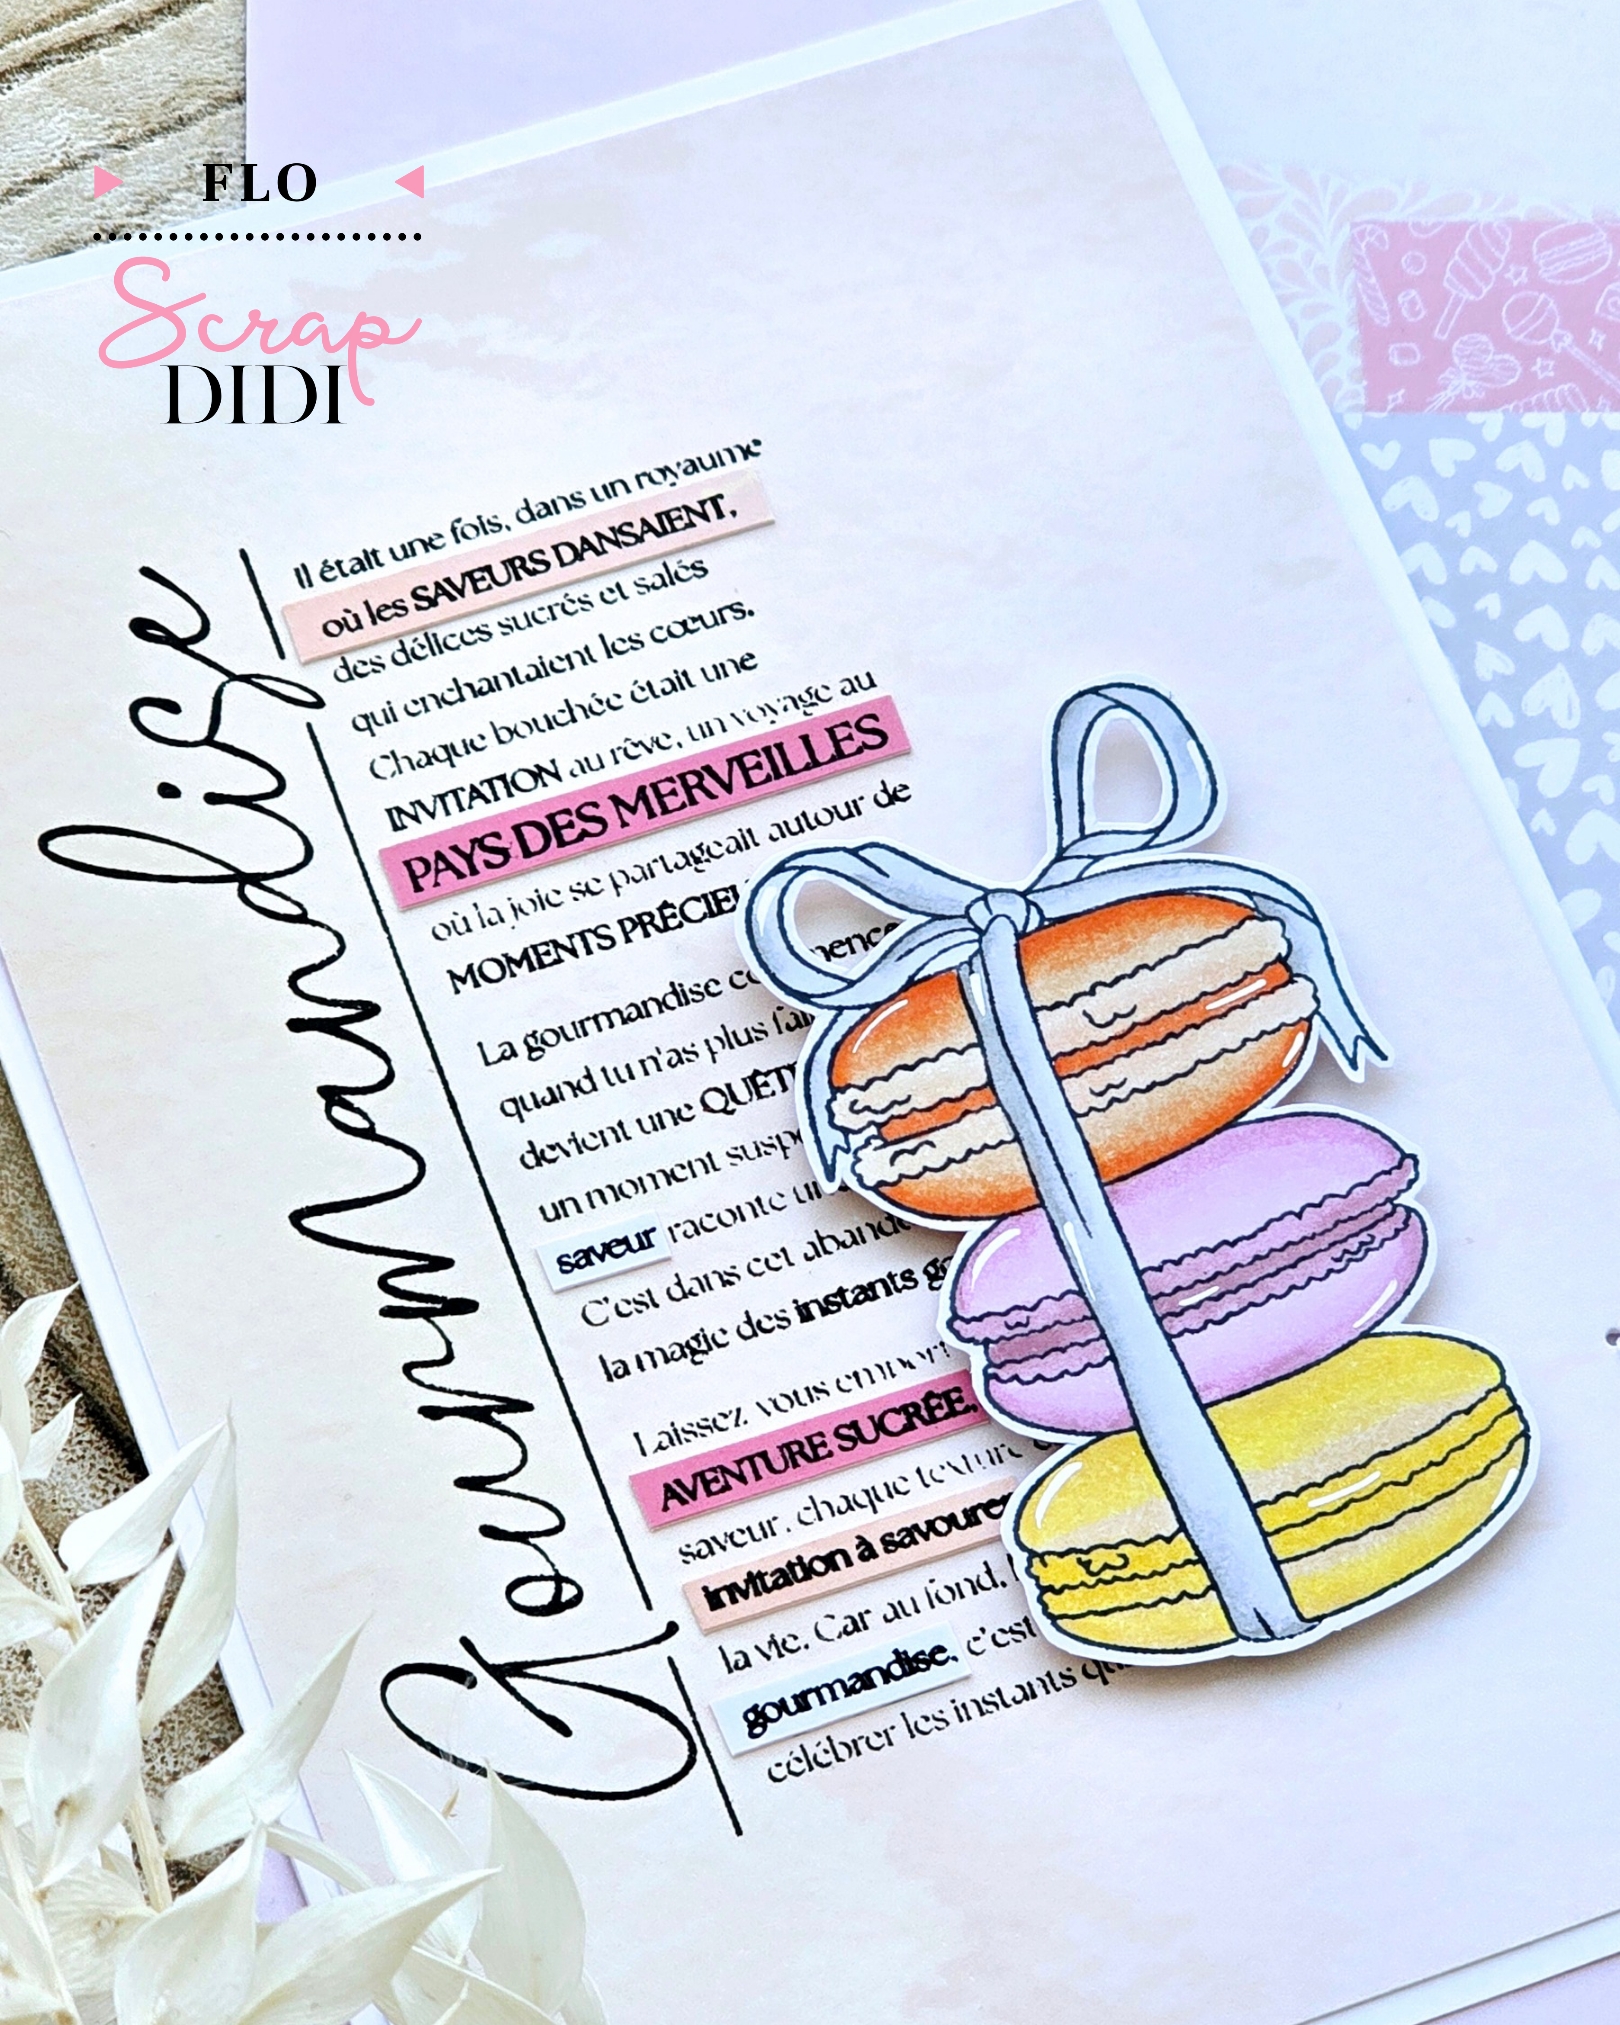 FLO
Scrap
DIDI
Gourmandise
Il était une fois, dans un royaume
où les SAVEURS DANSAIENT,
des délices sucrés et salés
qui enchantaient les cœurs.
Chaque bouchée était une
INVITATION au rêve, un voyage au
PAYS DES MERVEILLES
où la joie se partageait autour de
MOMENTS PRÉCIEU
La gourmandise
quand tu n'as plus
devient une
un moment
saveur raconte
C'est dans cet
la magie des instants
Laissez vous
AVENTURE SUCRÉE,
saveur, chaque texture
invitation à savourer
la vie. Car au fond,
gourmandise, c'est
célébrer les instants